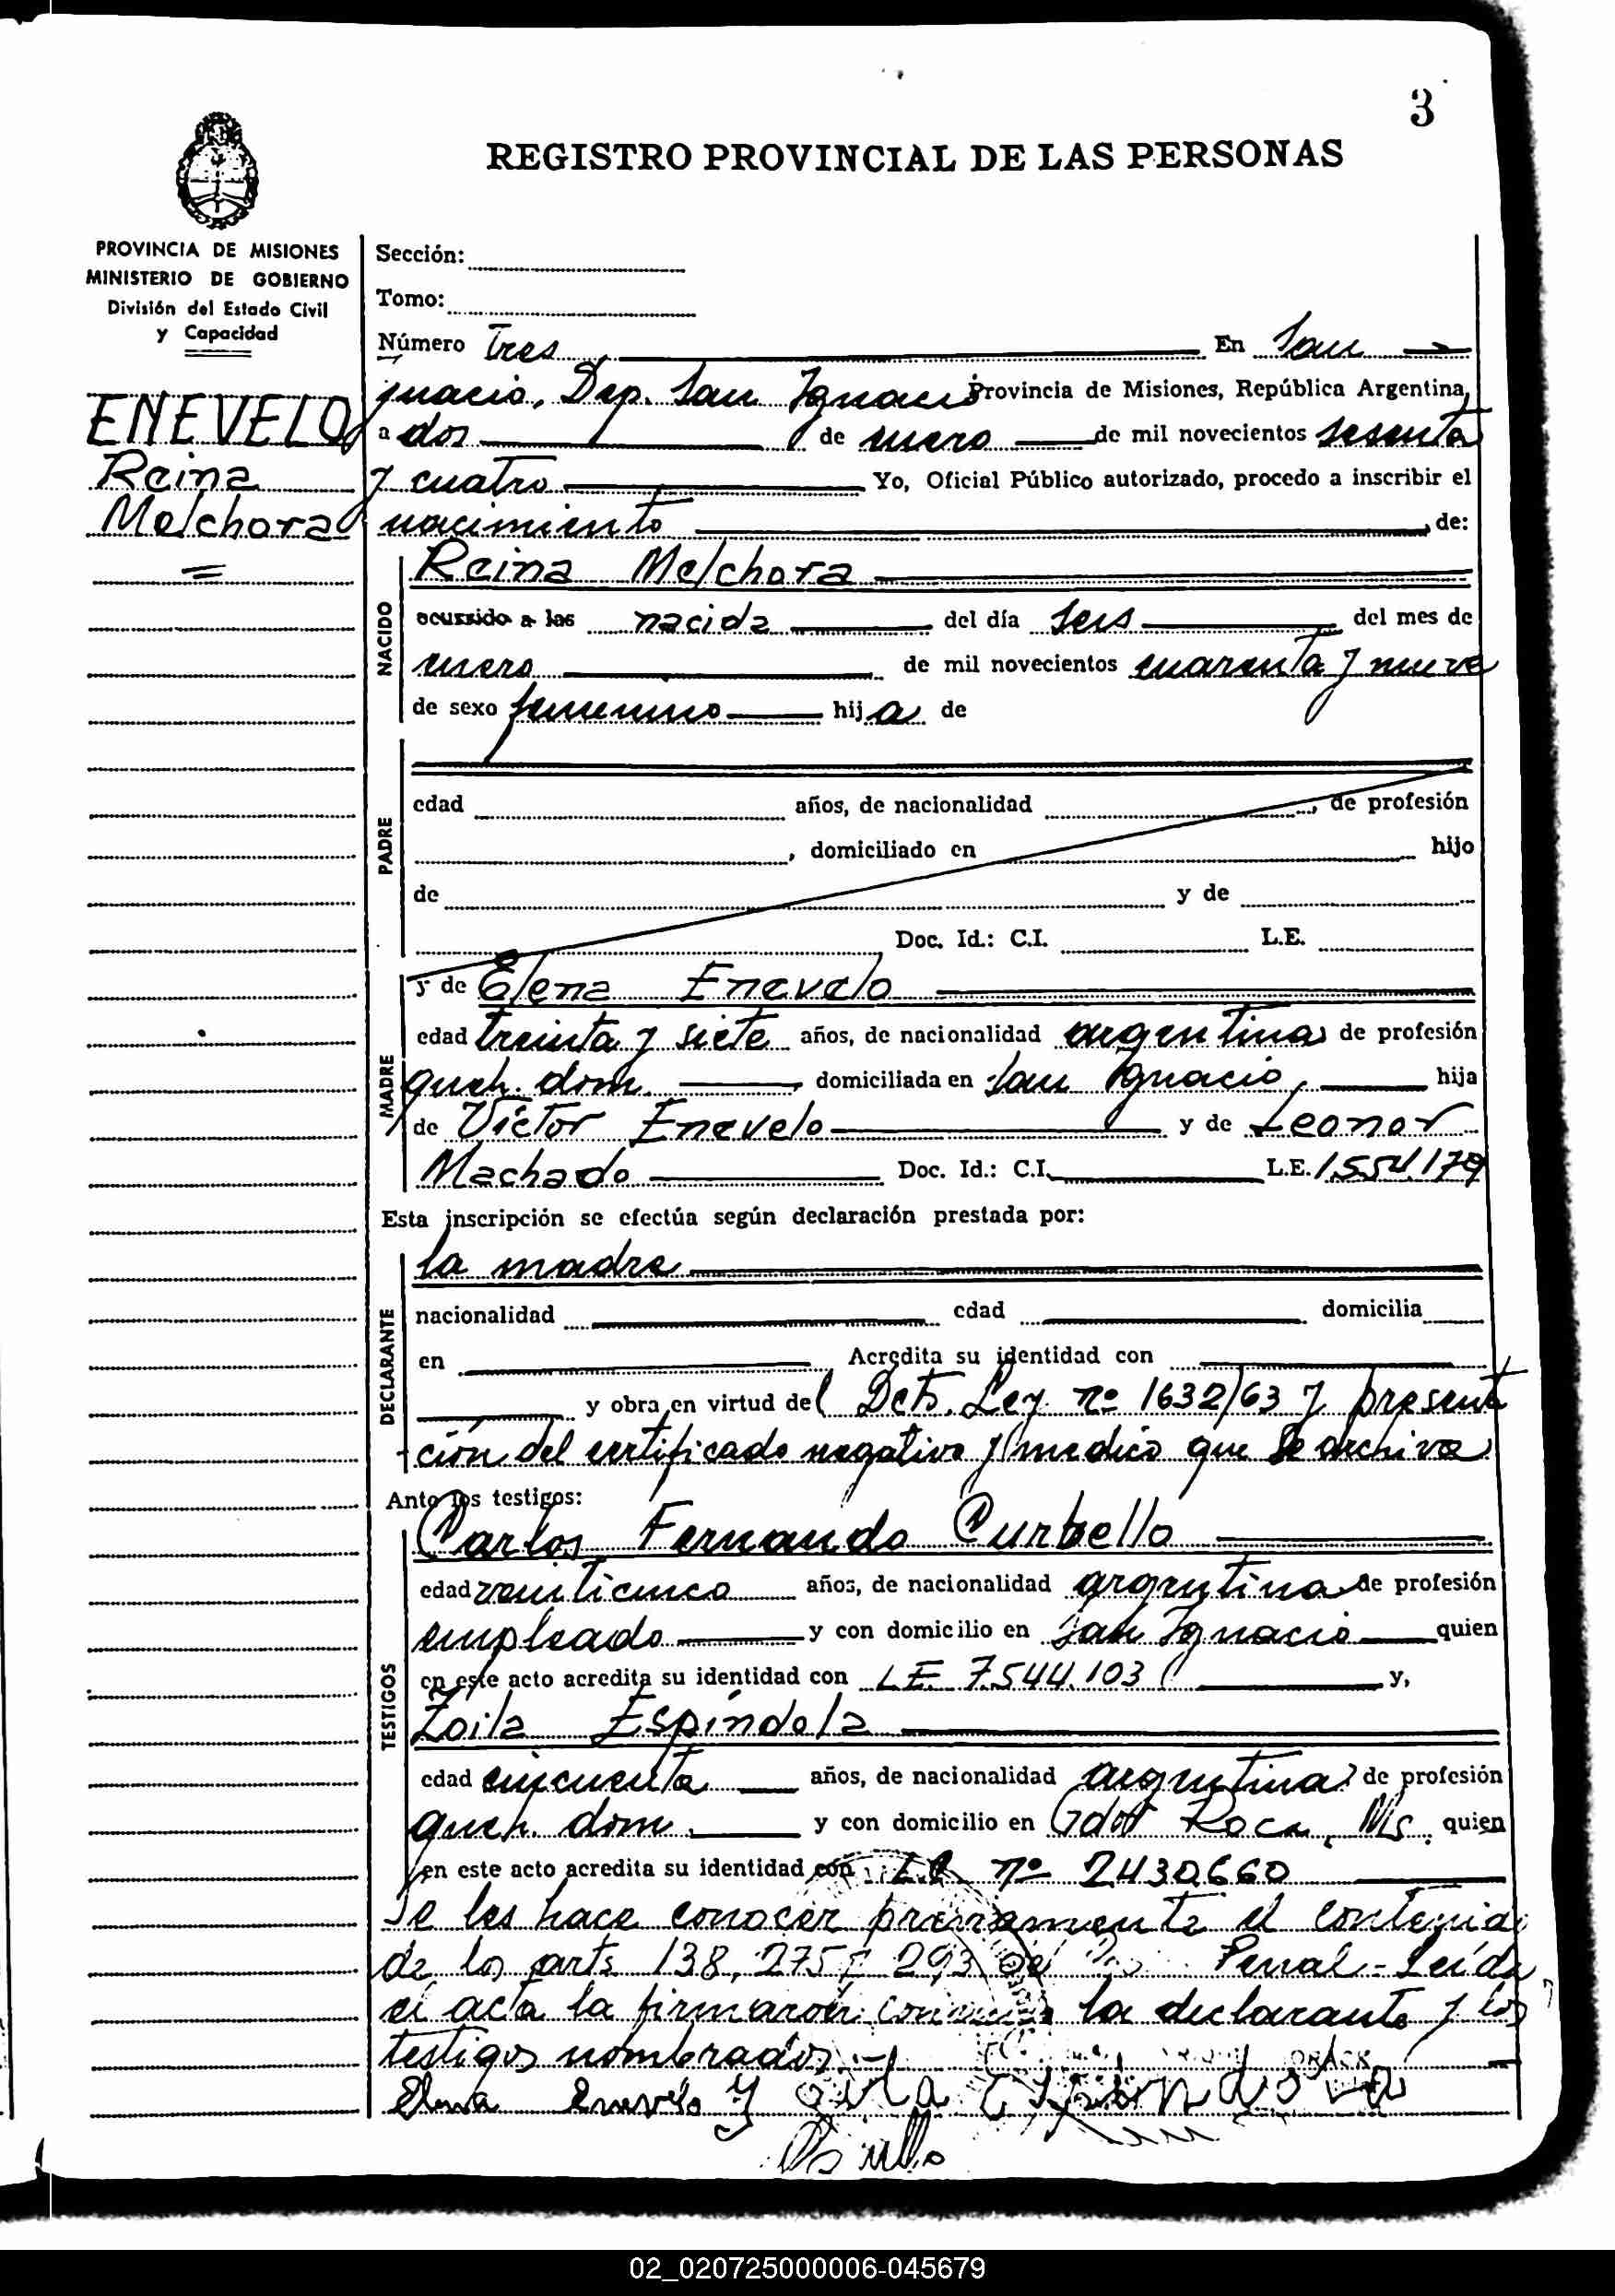 3
REGISTRO PROVINCIAL DE LAS PERSONAS
PROVINCIA DE MISIONES
MINISTERIO DE GOBIERNO
División del Estado Civil
y Capacidad
ENEVELO
Reina
Melchora
=
Sección:
Tomo:
Número Tres En San
Ignacio, Dep. San Ignacio Provincia de Misiones, República Argentina,
a dos de enero de mil novecientos sesenta
y cuatro Yo, Oficial Público autorizado, procedo a inscribir el
nacimiento de:
NACIDO
Reina Melchora
ocurrido a las nacida del día seis del mes de
enero de mil novecientos cuarenta y nueve
de sexo femenino hija de
PADRE
edad años, de nacionalidad , de profesión
, domiciliado en hijo
de y de
Doc. Id.: C.I. L.E.
MADRE
y de Elena Enevelo
edad treinta y siete años, de nacionalidad argentina de profesión
queh. dom. domiciliada en San Ignacio, hija
de Víctor Enevelo y de Leonor
Machado Doc. Id.: C.I. L.E. 1.554.179
Esta inscripción se efectúa según declaración prestada por:
DECLARANTE
la madre
nacionalidad edad domicilia
en Acredita su identidad con
y obra en virtud del Dcto. Ley nº 1632/63 y presenta
ción del certificado negativo y medico que se archiva
Ante los testigos:
TESTIGOS
Carlos Fernando Curbello
edad veinticinco años, de nacionalidad argentina de profesión
empleado y con domicilio en San Ignacio quien
en este acto acredita su identidad con L.E. 7.544.103 y,
Zoila Espíndola
edad cincuenta años, de nacionalidad argentina de profesión
queh. dom. y con domicilio en Gdor Roca, Ms. quien
en este acto acredita su identidad con L.C. nº 2430.660
Se les hace conocer previamente el contenido
de los arts 138, 275 y 293 del Penal - Leída
el acta la firmaron conmigo la declarante y los
testigos nombrados.-
Elena Enevelo Zoila Espindola
02_020725000006-045679